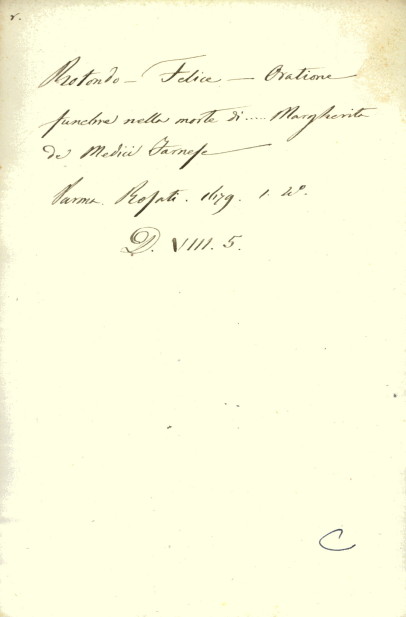 r.
Rotondo – Felice – Oratione
funebre nella morte di ..... Margherita
de Medici Farnese
Parma. Rosati. 1679. 1. 4º.
D. VIII. 5.
C